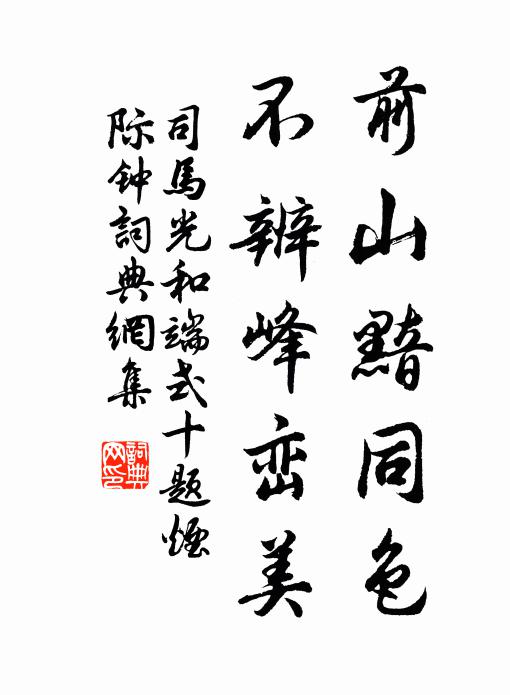 前山黯同色
不辨峰峦美
司馬光和端式十题烟
际钟詞典網集
詞典网印